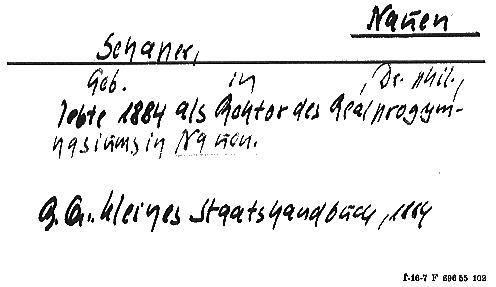 Nauen
Schaper,
Geb. in , Dr. phil.,
lebte 1884 als Rektor des Realprogym-
nasiums in Nauen.
kleines Staatshandbuch, 1884
f-16-7 F 696 55 102